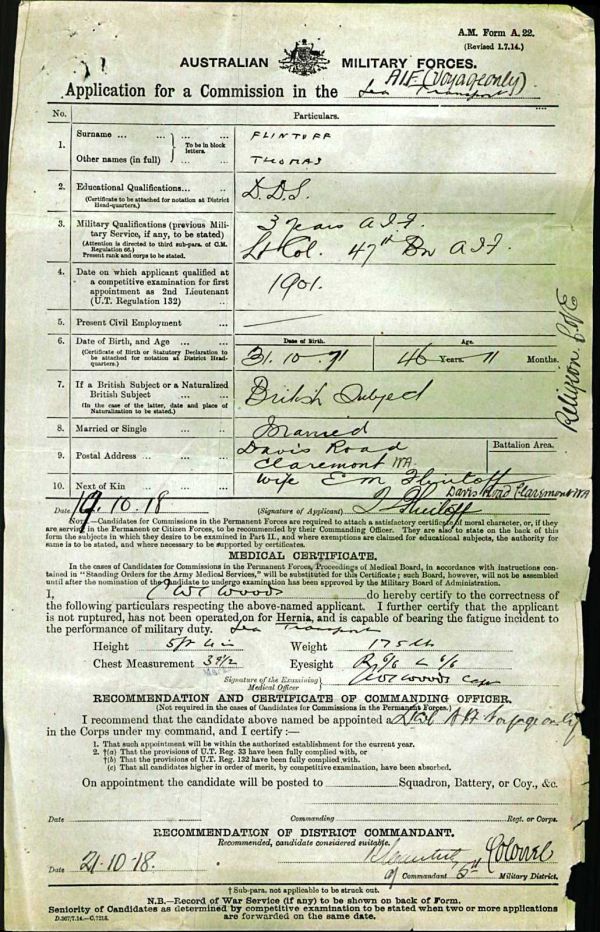 A.M. Form A. 22.
(Revised 1.7.14.)
AUSTRALIAN MILITARY FORCES.
AIF (Voyage only)
Application for a Commission in the Sea Transport
No. Particulars.
1. Surname ... ... To be in block letters. FLINTOFF
Other names (in full) THOMAS
2. Educational Qualifications... D.D.S.
(Certificate to be attached for notation at District Head-quarters.)
3. Military Qualifications (previous Military Service, if any, to be stated) 3 years A.I.F.
(Attention is directed to third sub-para. of C.M. Regulation 66.) Lt Col. 47th Bn A.I.F.
Present rank and corps to be stated.
4. Date on which applicant qualified at a competitive examination for first appointment as 2nd Lieutenant (U.T. Regulation 132) 1901.
5. Present Civil Employment ...
6. Date of Birth, and Age ... Date of Birth. Age.
(Certificate of Birth or Statutory Declaration to be attached for notation at District Head-quarters.) 31.10.71 46 Years. 11 Months.
7. If a British Subject or a Naturalized British Subject ... British Subject
(In the case of the latter, date and place of Naturalization to be stated.)
8. Married or Single Married
9. Postal Address ... Davis Road Battalion Area.
Claremont WA.
10. Next of Kin Wife E M Flintoff Davis Road Claremont WA
Religion C of E
Date 19.10.18 (Signature of Applicant) T Flintoff
NOTE.—Candidates for Commissions in the Permanent Forces are required to attach a satisfactory certificate of moral character, or, if they
are serving in the Permanent or Citizen Forces, to be recommended by their Commanding Officer. They are also to state on the back of this
form the subjects in which they desire to be examined in Part II., and where exemptions are claimed for educational subjects, the authority for
same is to be stated, and where necessary to be supported by certificates.
MEDICAL CERTIFICATE.
In the cases of Candidates for Commissions in the Permanent Forces, Proceedings of Medical Board, in accordance with instructions con-
tained in "Standing Orders for the Army Medical Services," will be substituted for this Certificate; such Board, however, will not be assembled
until after the nomination of the Candidate to undergo examination has been approved by the Military Board of Administration.
I, Woods do hereby certify to the correctness of
the following particulars respecting the above-named applicant. I further certify that the applicant
is not ruptured, has not been operated on for Hernia, and is capable of bearing the fatigue incident to
the performance of military duty. Sea Transport
Height 5ft Weight 175 lbs
Chest Measurement 39½ Eyesight R 6/6 L 6/6
Signature of the Examining Medical Officer Woods Capt
RECOMMENDATION AND CERTIFICATE OF COMMANDING OFFICER.
(Not required in the cases of Candidates for Commissions in the Permanent Forces.)
I recommend that the candidate above named be appointed a Lt Col AIF Voyage only
in the Corps under my command, and I certify :—
1. That such appointment will be within the authorized establishment for the current year.
2. †(a) That the provisions of U.T. Reg. 33 have been fully complied with, or
†(b) That the provisions of U.T. Reg. 132 have been fully complied with.
(c) That all candidates higher in order of merit, by competitive examination, have been absorbed.
On appointment the candidate will be posted to Squadron, Battery, or Coy., &c.
Date Commanding Regt. or Corps.
RECOMMENDATION OF DISTRICT COMMANDANT.
Recommended, candidate considered suitable.
Colonel
Date 21.10.18. Commandant 5th Military District.
† Sub-para. not applicable to be struck out.
N.B.—Record of War Service (if any) to be shown on back of Form.
Seniority of Candidates as determined by competitive examination to be stated when two or more applications
are forwarded on the same date.
D.367/7.14.—C.7218.